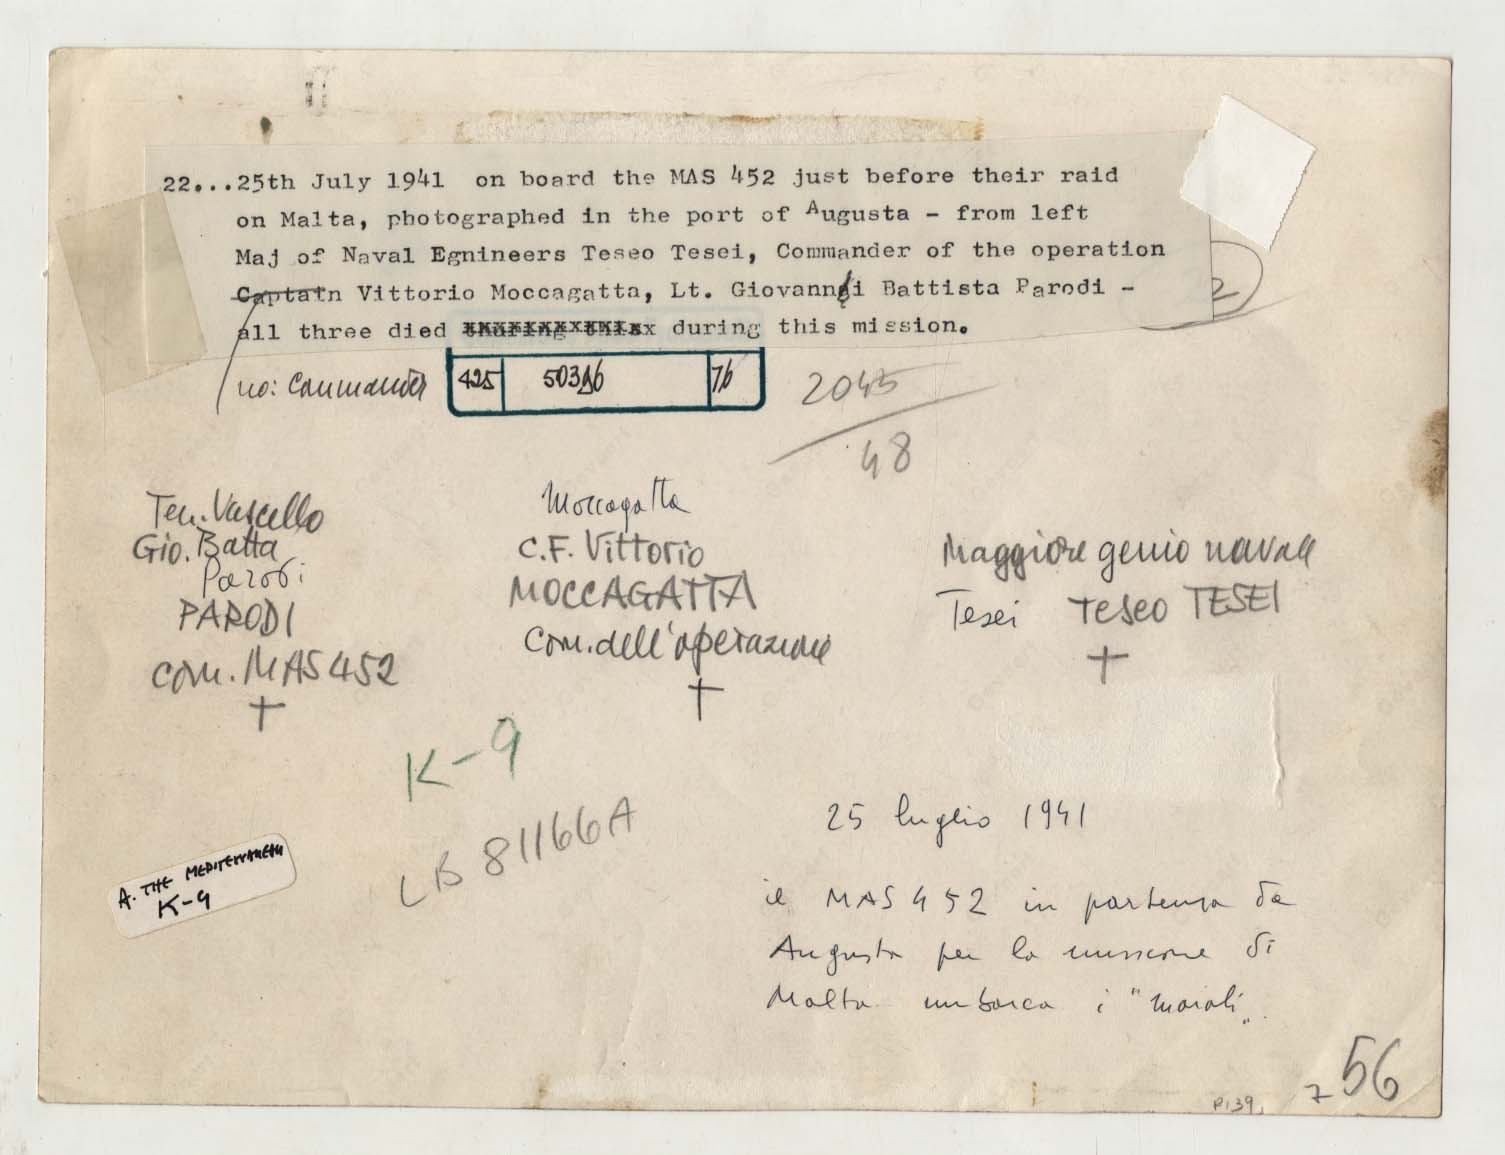 22...25th July 1941 on board the MAS 452 just before their raid
on Malta, photographed in the port of Augusta - from left
Maj of Naval Egnineers Teseo Tesei, Commander of the operation
Captain Vittorio Moccagatta, Lt. Giovanni Battista Parodi -
all three died during this mission.
no: Commander
425 503 6 76
2045
48
Ten. Vascello
Gio. Batta
Parodi
PARODI
com. MAS 452
†
Moccagatta
C.F. Vittorio
MOCCAGATTA
Com. dell'operazione
†
Maggiore genio navale
Tesei Teseo TESEI
†
K-9
LB 81166A
A. THE MEDITERRANEAN
K-9
25 luglio 1941
il MAS 452 in partenza da
Augusta per la missione di
Malta imbarca i "maiali".
7 56
P139